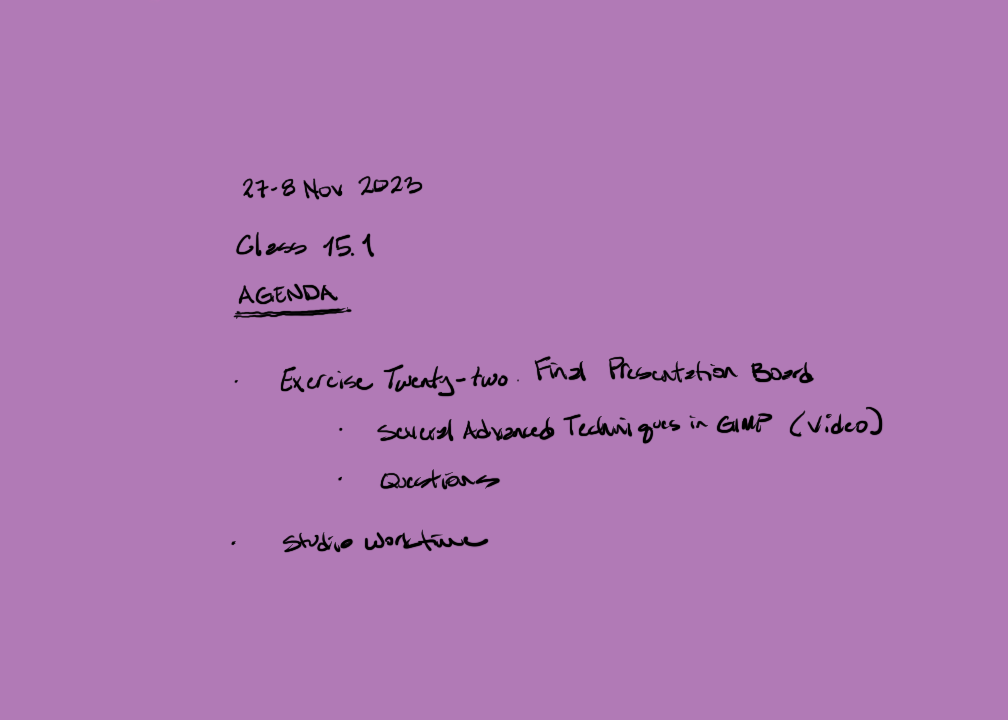 27-8 Nov 2023
Class 15.1
AGENDA
· Exercise Twenty-two. Final Presentation Board
· Several Advanced Techniques in GIMP (Video)
· Questions
· Studio Worktime